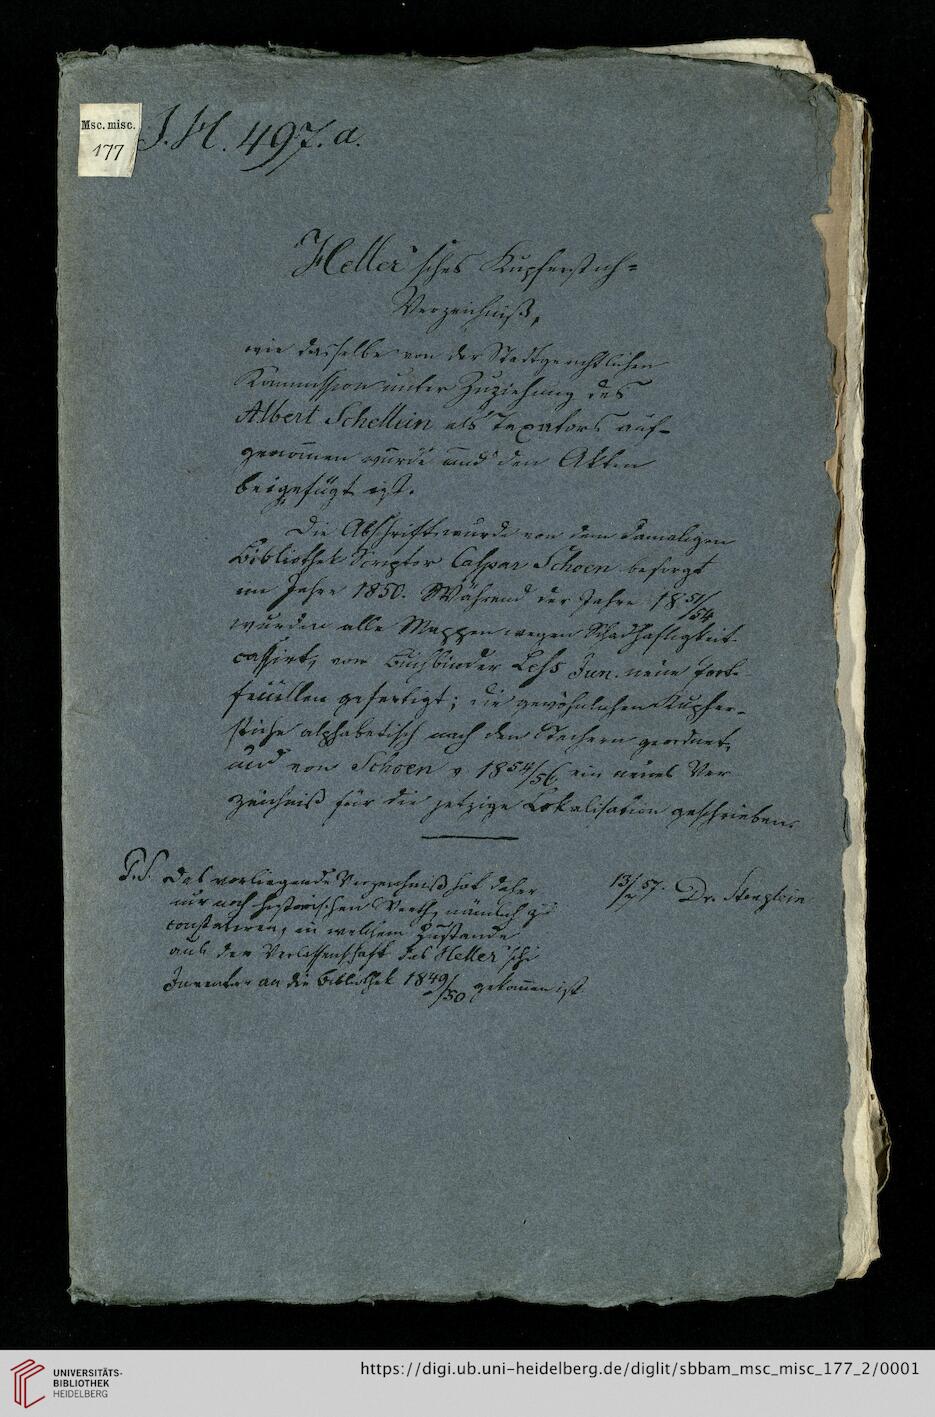 Msc. misc.
177
J. H. 497. a.
Heller'sches Kupferstich=
Verzeichniß,
wie dasselbe von der Stadtgerichtlichen
Kommission unter Zuziehung des
Albert Schellein als Taxators auf-
genom̅en wurde und den Akten
beigefügt ist.
Die Abschrift wurde von dem damaligen
Bibliothek Scriptor Caspar Schoen besorgt
im Jahre 1850. Während der Jahre 1851/54
wurden alle Mappen wegen Schadhaftigkeit
cassirt, vom Buchbinder Leß Jun. neue Porte
feuillen gefertigt; die gewöhnlichen Kupfer-
stiche alphabetisch nach den Stechern geordnet,
und von Schoen v. 1854/56 ein neues Ver
zeichniß für die jetzige Lokalisation geschrieben.
P. S. Das vorliegende Verzeichniß hat daher
nur noch historischen Werth, nämlich zu
constatiren, in welchem Zustande
aus der Verlassenschaft das Heller'sche
Inventar an die Bibliothek 1849/50 gekom̅en ist.
13/ 57. Dr. Stenglein
UNIVERSITÄTS-
BIBLIOTHEK
HEIDELBERG
https://digi.ub.uni-heidelberg.de/diglit/sbbam_msc_misc_177_2/0001